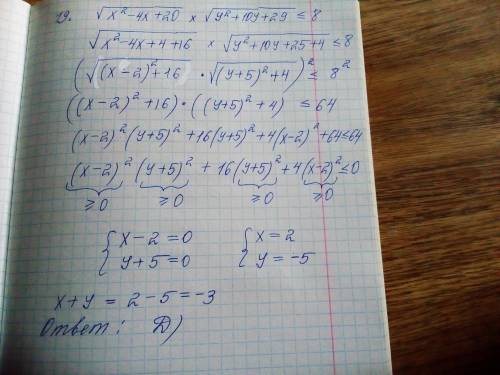 19. √x²-4x+20 × √y²+10y+29 ≤ 8
√x²-4x+4+16 × √y²+10y+25+4 ≤ 8
(√(x-2)²+16 · √(y+5)²+4)² ≤ 8²
((x-2)²+16)·((y+5)²+4) ≤ 64
(x-2)²(y+5)²+16(y+5)²+4(x-2)²+64≤64
(x-2)²(y+5)²+16(y+5)²+4(x-2)²≤0
≥0 ≥0 ≥0 ≥0
{ x-2=0 { x=2
{ y+5=0 { y=-5
x+y = 2-5=-3
Ответ: D)